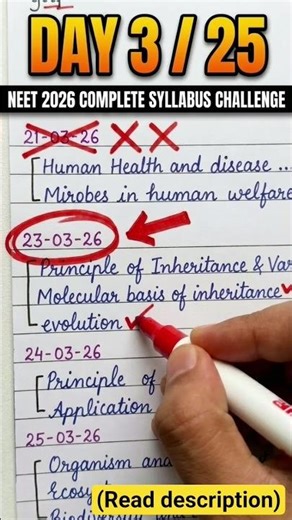 DAY 3 / 25
NEET 2026 COMPLETE SYLLABUS CHALLENGE
21-03-26
Human Health and disease ...
Mirobes in human welfare
23-03-26
Principle of Inheritance & Var
Molecular basis of inheritance
evolution
24-03-26
Principle of
Application
25-03-26
Organism and
Ecosyst
Biodiversity
(Read description)